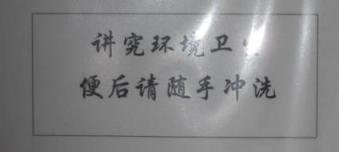 讲究环境卫生
便后请随手冲洗